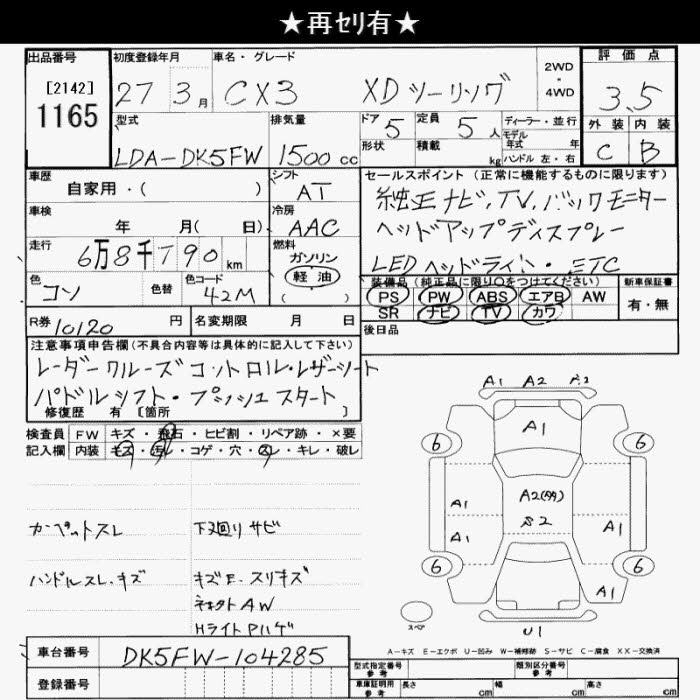 ★再ｾﾘ有★
出品番号
[2142]
1165
初度登録年月
27 3月
車名・グレード
CX3 XDツーリング
2WD
・
4WD
評価点
3.5
外装 内装
C B
型式
LDA-DK5FW
排気量
1500cc
ドア 5
定員 5人
形状
積載 kg
ディーラー・並行
モデル
年式 年
ハンドル 左・右
車歴
自家用・( )
シフト
AT
車検
年 月( 日)
冷房
AAC
走行
6万8千190km
燃料
ガソリン
軽油
( )
色
コン
色替
色コード
42M
セールスポイント(正常に機能するものに限ります)
純正ナビ、TV、バックモニター
ヘッドアップディスプレー
LEDヘッドライト・ETC
装備品(純正品に限り○をつけてください)
PS PW ABS エアB AW
SR ナビ TV カワ
新車保証書
有・無
後日品
R券 10120円
名変期限 月 日
注意事項申告欄(不具合内容等は具体的に記入して下さい)
レーダークルーズコントロール・レザーシート
パドルシフト・プッシュスタート
修復歴 有 [箇所 ]
検査員 FW キズ・飛石・ヒビ割・リペア跡・×要
記入欄 内装 キズ・汚レ・コゲ・穴・スレ・キレ・破レ
カーペットスレ
下廻りサビ
ハンドルスレ・キズ
キズE・スリキズ
AW
HライトPハゲ
A1 A2
A1
6 6
A2(多)
S2
A1 A1
A1
6 6
A1
スペア
U1
A－キズ E－エクボ U－凹み W－補修跡 S－サビ C－腐食 XX－交換済
車台番号
DK5FW-104285
登録番号
型式指定番号
参考
類別区分番号
参考
車庫証明用
参考
長さ cm
幅 cm
高さ cm